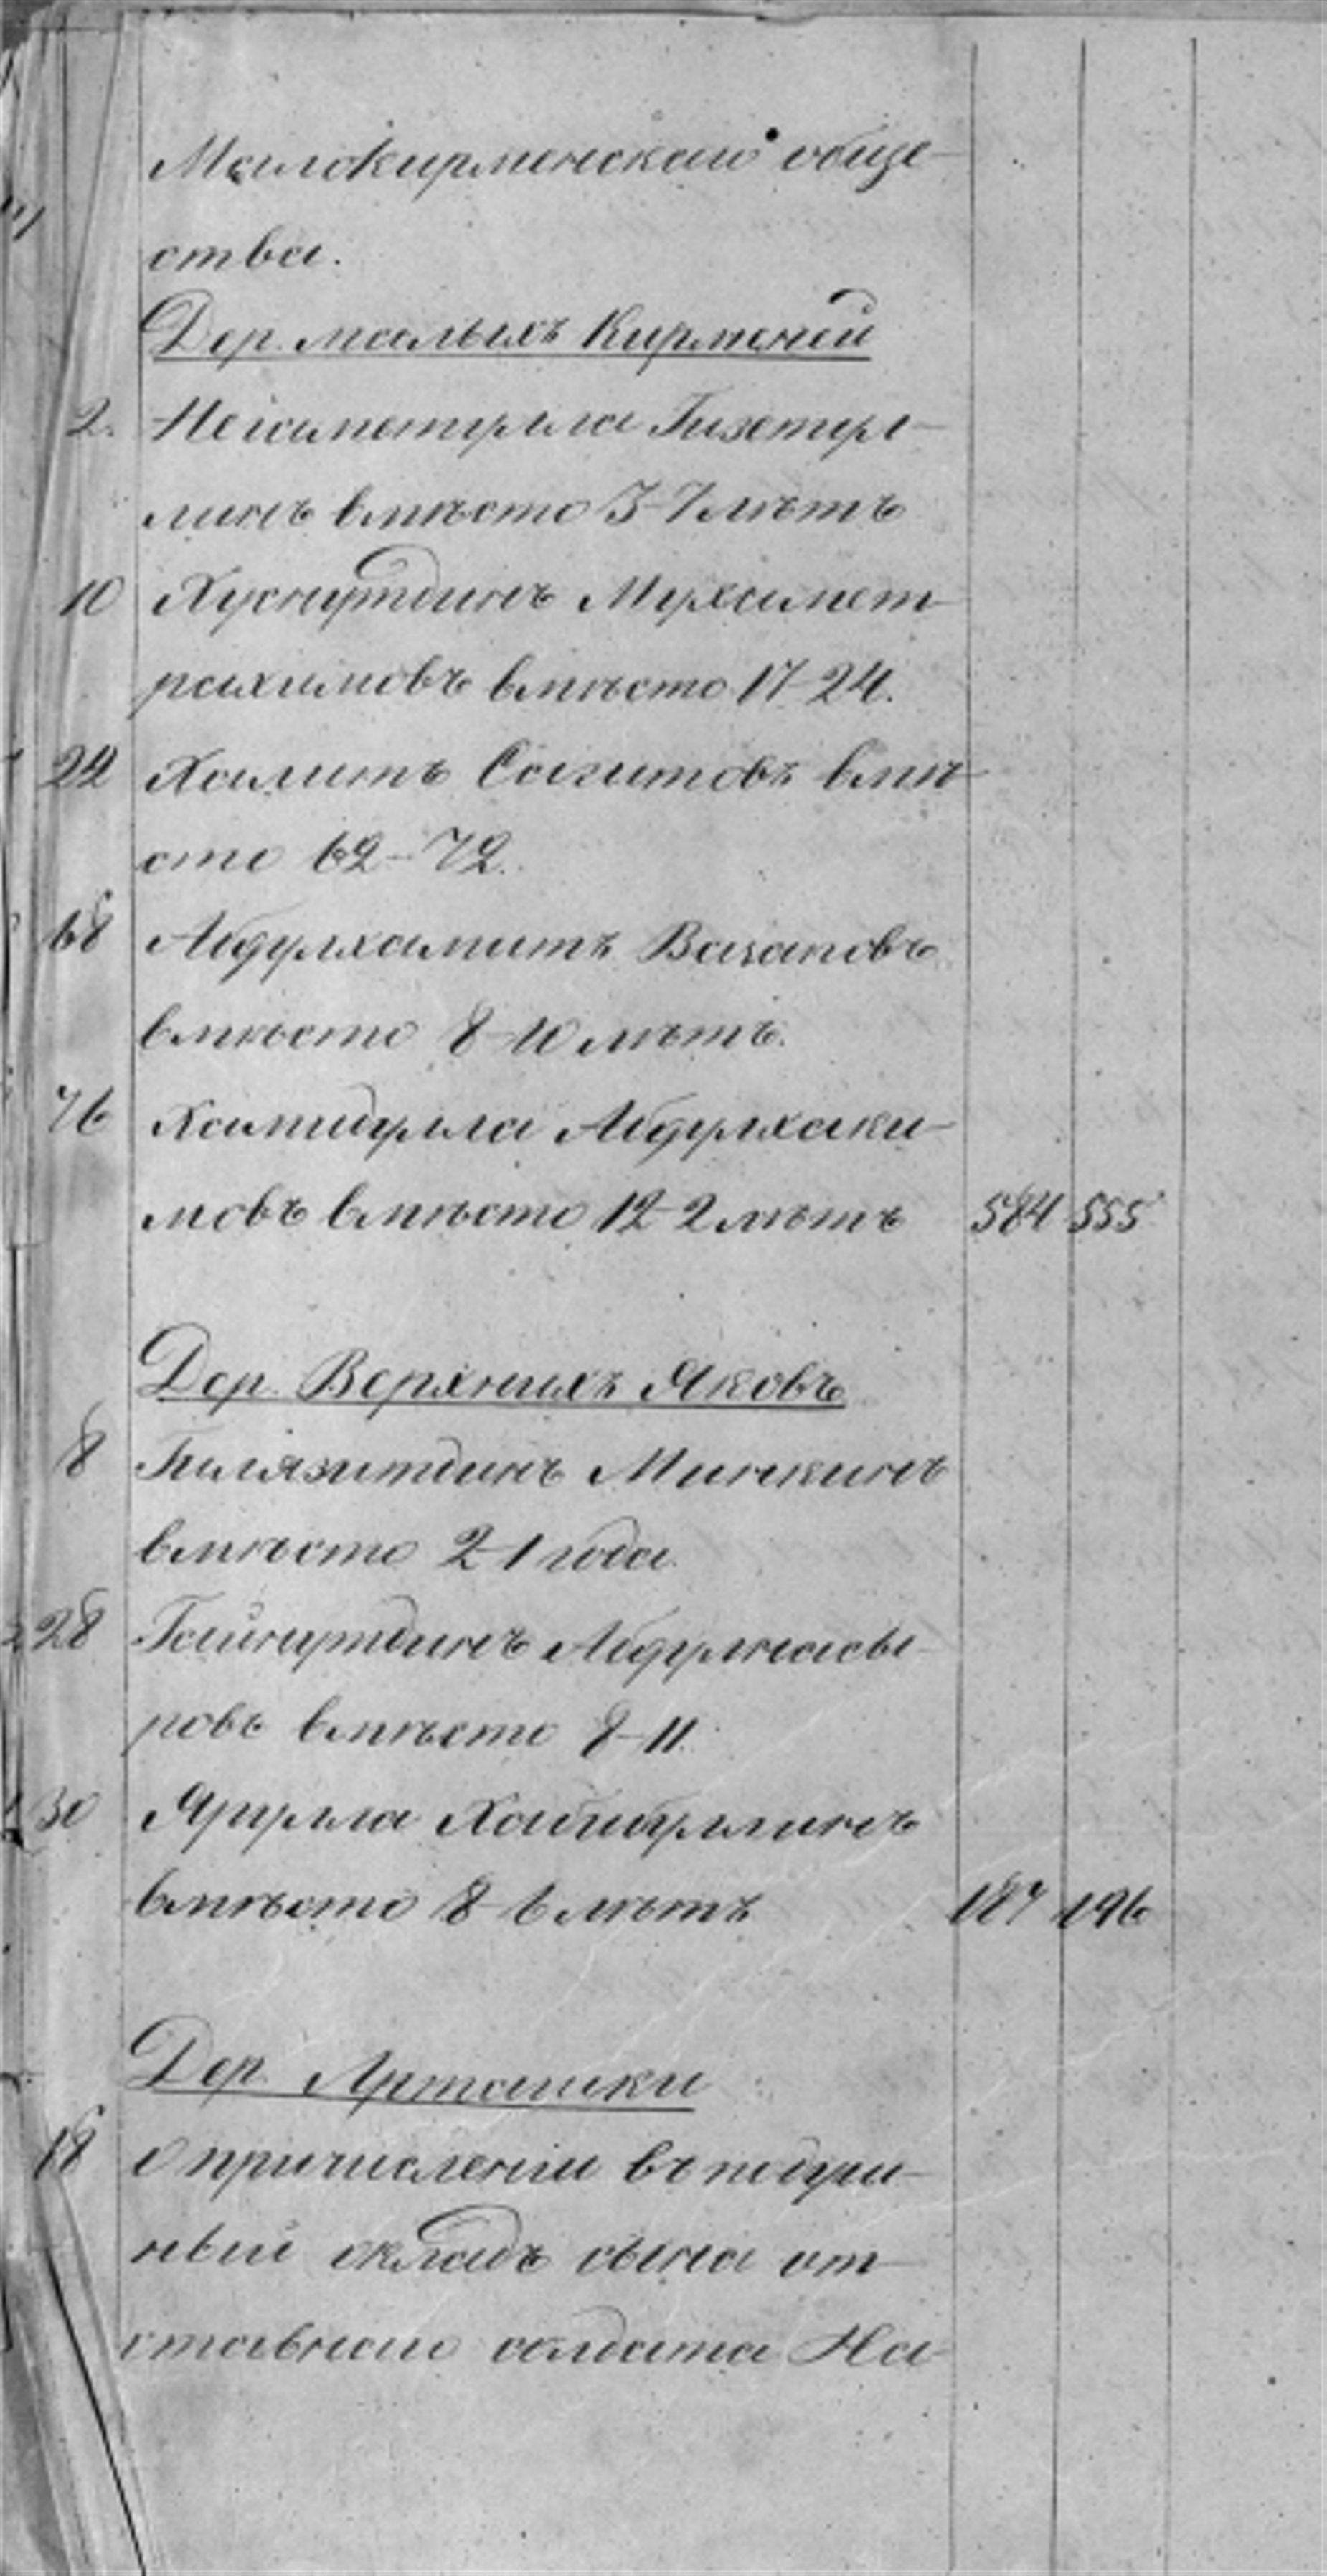 Малокирменскаго обще-
ства.
Дер. малыхъ Кирменей
2. Негаметулла Гизетул-
линъ вмѣсто 3-7 лѣтъ
10 Хуснутдинъ Мухамет
рахимовъ вмѣсто 17-24.
22 Халитъ Сагитовъ вмѣ-
сто 62-72.
68 Абдулхамитъ Вагаповъ
вмѣсто 8-10 лѣтъ.
76 Хамидулла Абдулхаки-
мовъ вмѣсто 12-2 лѣтъ 584 555
Дер. Верхнихъ Яковъ
8 Гилязитдинъ Минкинъ
вмѣсто 2-1 года.
28 Гайнутдинъ Абдулнасы-
ровъ вмѣсто 8-11.
30 Ярулла Хабибуллинъ
вмѣсто 8-6 лѣтъ 187 196
Дер. Арташки
18 О причисленіи въ подуш-
ный окладъ сына от-
ставнаго солдата На-